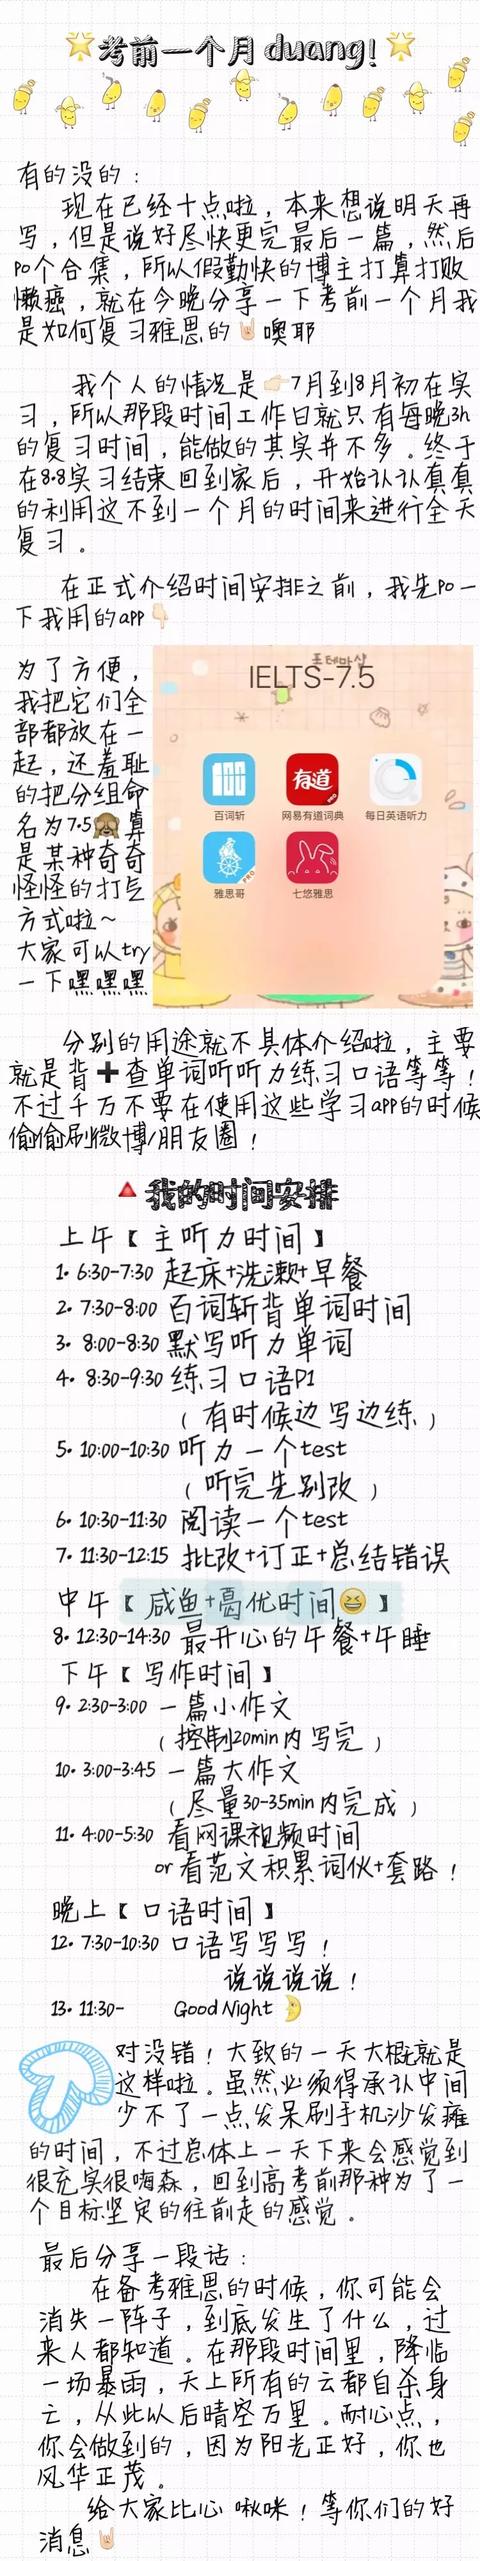 考前一个月 duang!
有的没的：
现在已经十点啦，本来想说明天再
写，但是说好尽快更完最后一篇，然后
po个合集，所以假勤快的博主打算打败
懒癌，就在今晚分享一下考前一个月我
是如何复习雅思的🤘🏻噢耶
我个人的情况是👉🏻7月到8月初在实
习，所以那段时间工作日就只有每晚3h
的复习时间，能做的其实并不多。终于
在8.8实习结束回到家后，开始认认真真
的利用这不到一个月的时间来进行全天
复习。
在正式介绍时间安排之前，我先po一
下我用的app👇🏻
为了方便，
我把它们全
部都放在一
起，还羞耻
的把分组命
名为7.5🙈算
是某种奇奇
怪怪的打气
方式啦~
大家可以try
一下嘿嘿嘿
포테마샵
IELTS-7.5
100
有道
PRO
百词斩
网易有道词典
每日英语听力
PRO
雅思哥
七悠雅思
分别的用途就不具体介绍啦，主要
就是背➕查单词听听力练习口语等等！
不过千万不要在使用这些学习app的时候
偷偷刷微博/朋友圈！
🔺我的时间安排
上午【 主听力时间 】
1. 6:30-7:30 起床+洗漱+早餐
2. 7:30-8:00 百词斩背单词时间
3. 8:00-8:30 默写听力单词
4. 8:30-9:30 练习口语P1
（ 有时候边写边练 ）
5. 10:00-10:30 听力一个test
（ 听完先别改 ）
6. 10:30-11:30 阅读一个test
7. 11:30-12:15 批改+订正+总结错误
中午【 咸鱼+葛优时间😆 】
8. 12:30-14:30 最开心的午餐+午睡
下午【 写作时间 】
9. 2:30-3:00 一篇小作文
（ 控制20min内写完 ）
10. 3:00-3:45 一篇大作文
（ 尽量30-35min内完成 ）
11. 4:00-5:30 看网课视频时间
or 看范文积累词伙+套路！
晚上【 口语时间 】
12. 7:30-10:30 口语写写写！
说说说说！
13. 11:30- Good Night 🌛
对没错！大致的一天大概就是
这样啦。虽然必须得承认中间
少不了一点发呆刷手机沙发瘫
的时间，不过总体上一天下来会感觉到
很充实很嗨森，回到高考前那种为了一
个目标坚定的往前走的感觉。
最后分享一段话：
在备考雅思的时候，你可能会
消失一阵子，到底发生了什么，过
来人都知道。在那段时间里，降临
一场暴雨，天上所有的云都自杀身
亡，从此以后晴空万里。耐心点，
你会做到的，因为阳光正好，你也
风华正茂。
给大家比心 啾咪！等你们的好
消息🤘🏻